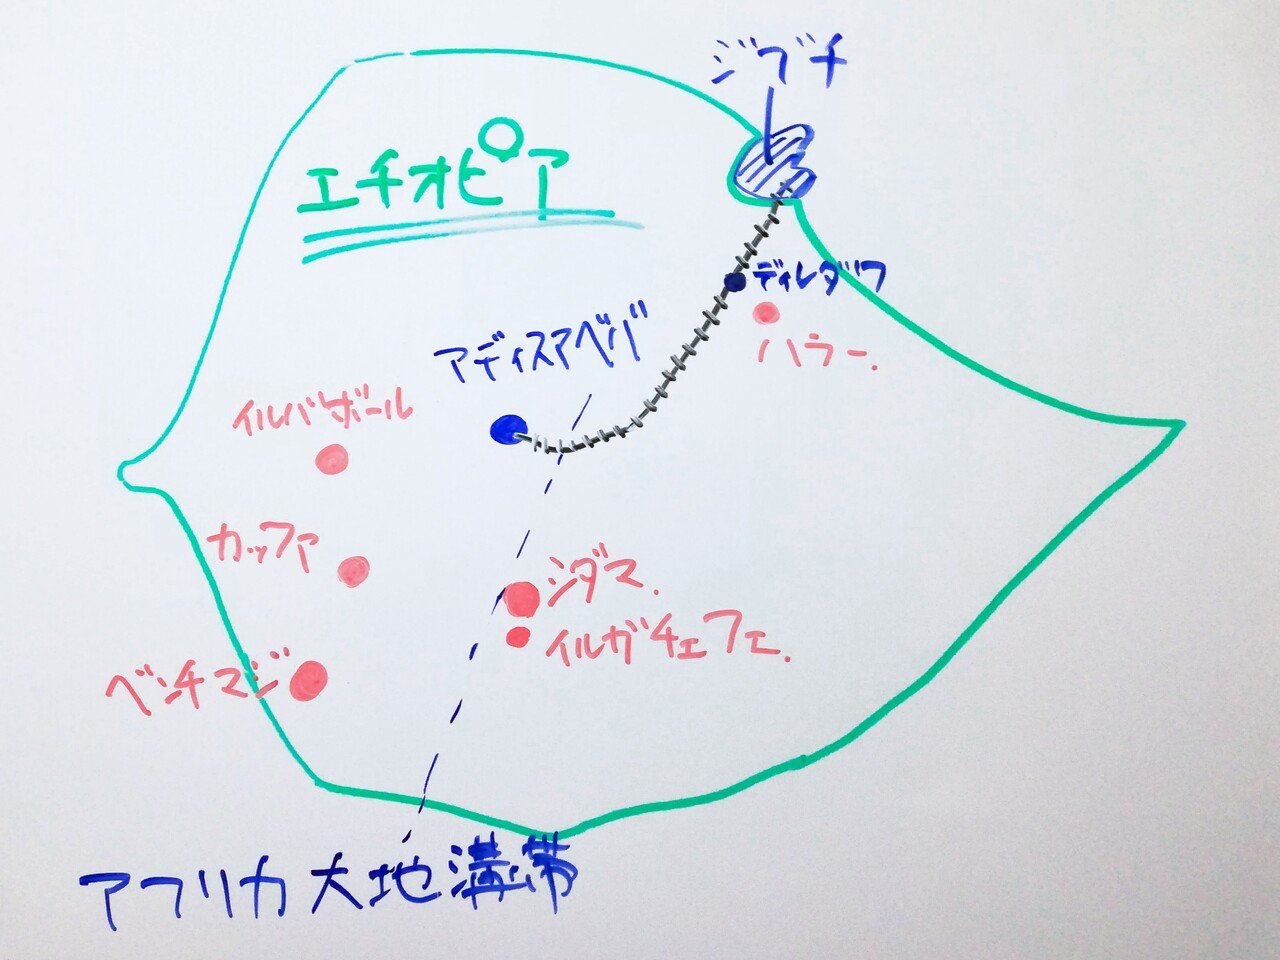 ジブチ
エチオピア
ディレダワ
ハラー.
アディスアベバ
イルバボール
カッファ
シダマ.
イルガチェフェ.
ベンチマジ
アフリカ大地溝帯